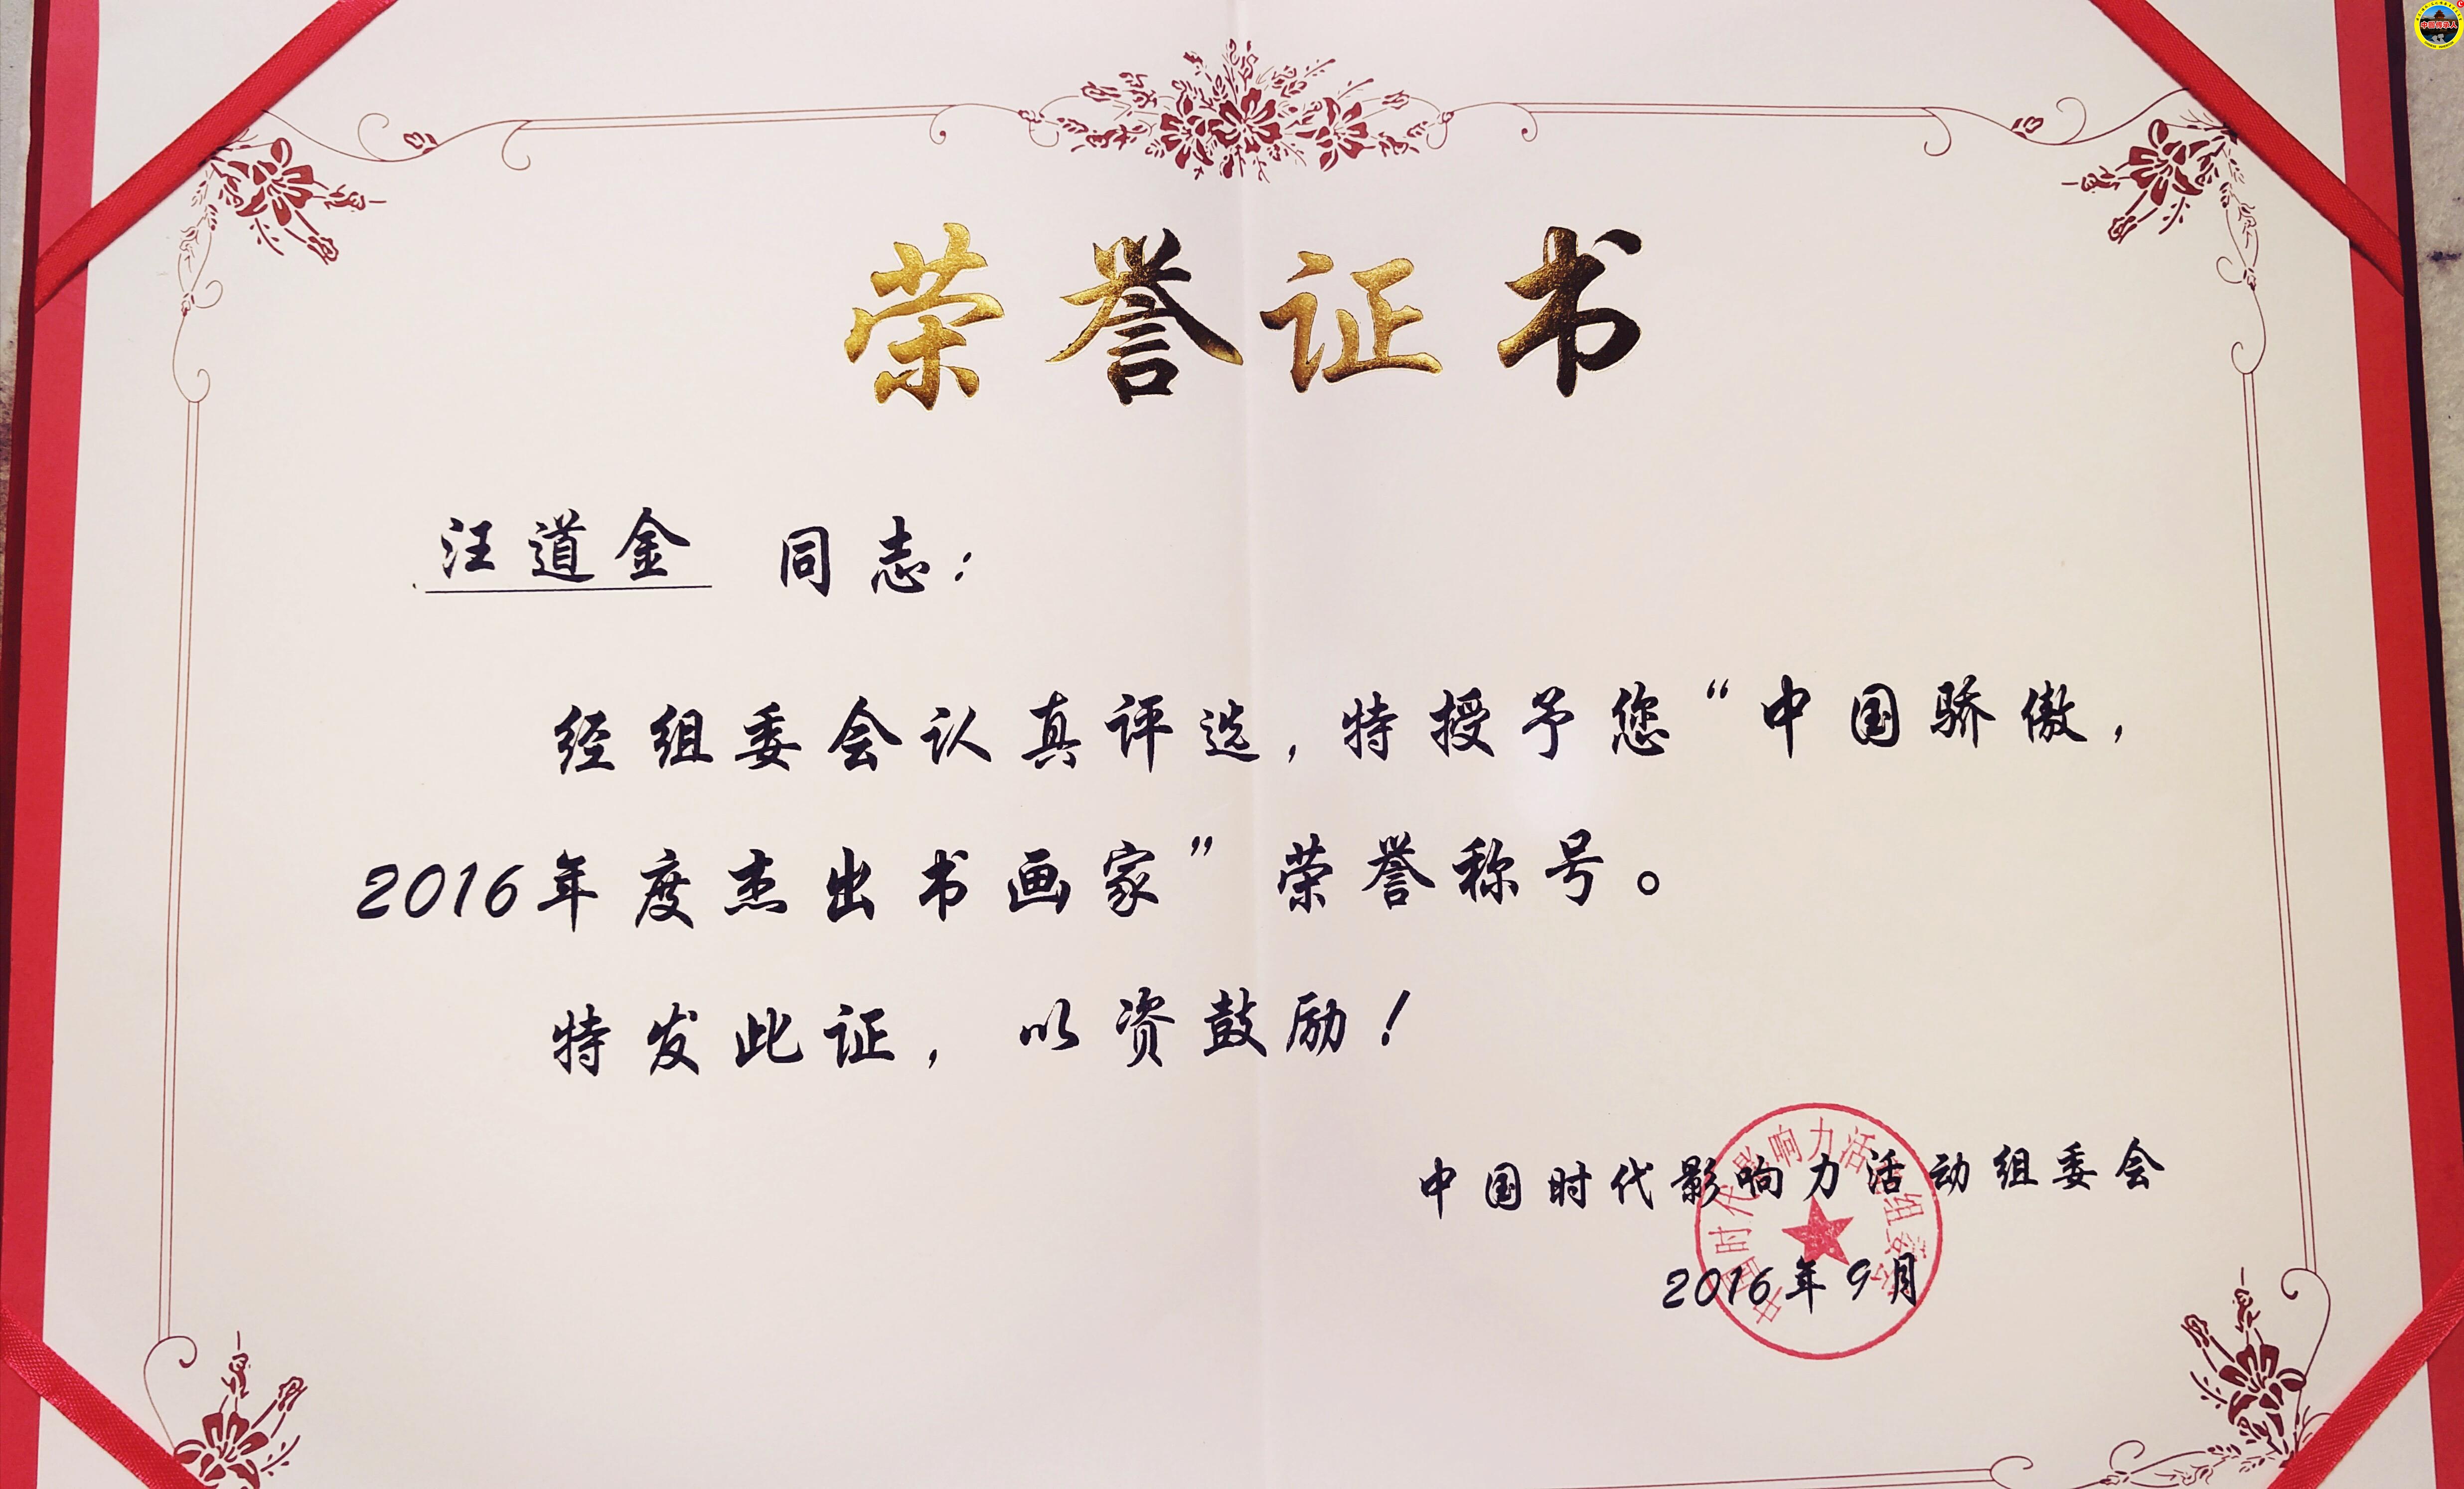 荣誉证书
汪道金 同志：
经组委会认真评选，特授予您“中国骄傲，
2016年度杰出书画家”荣誉称号。
特发此证，以资鼓励！
中国时代影响力活动组委会
2016年9月
中国时代影响力活动组委会